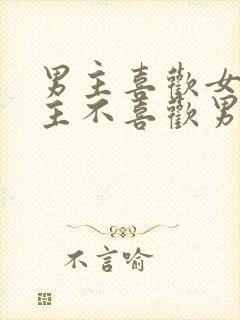 男主喜歡女
主不喜歡男
不言喻